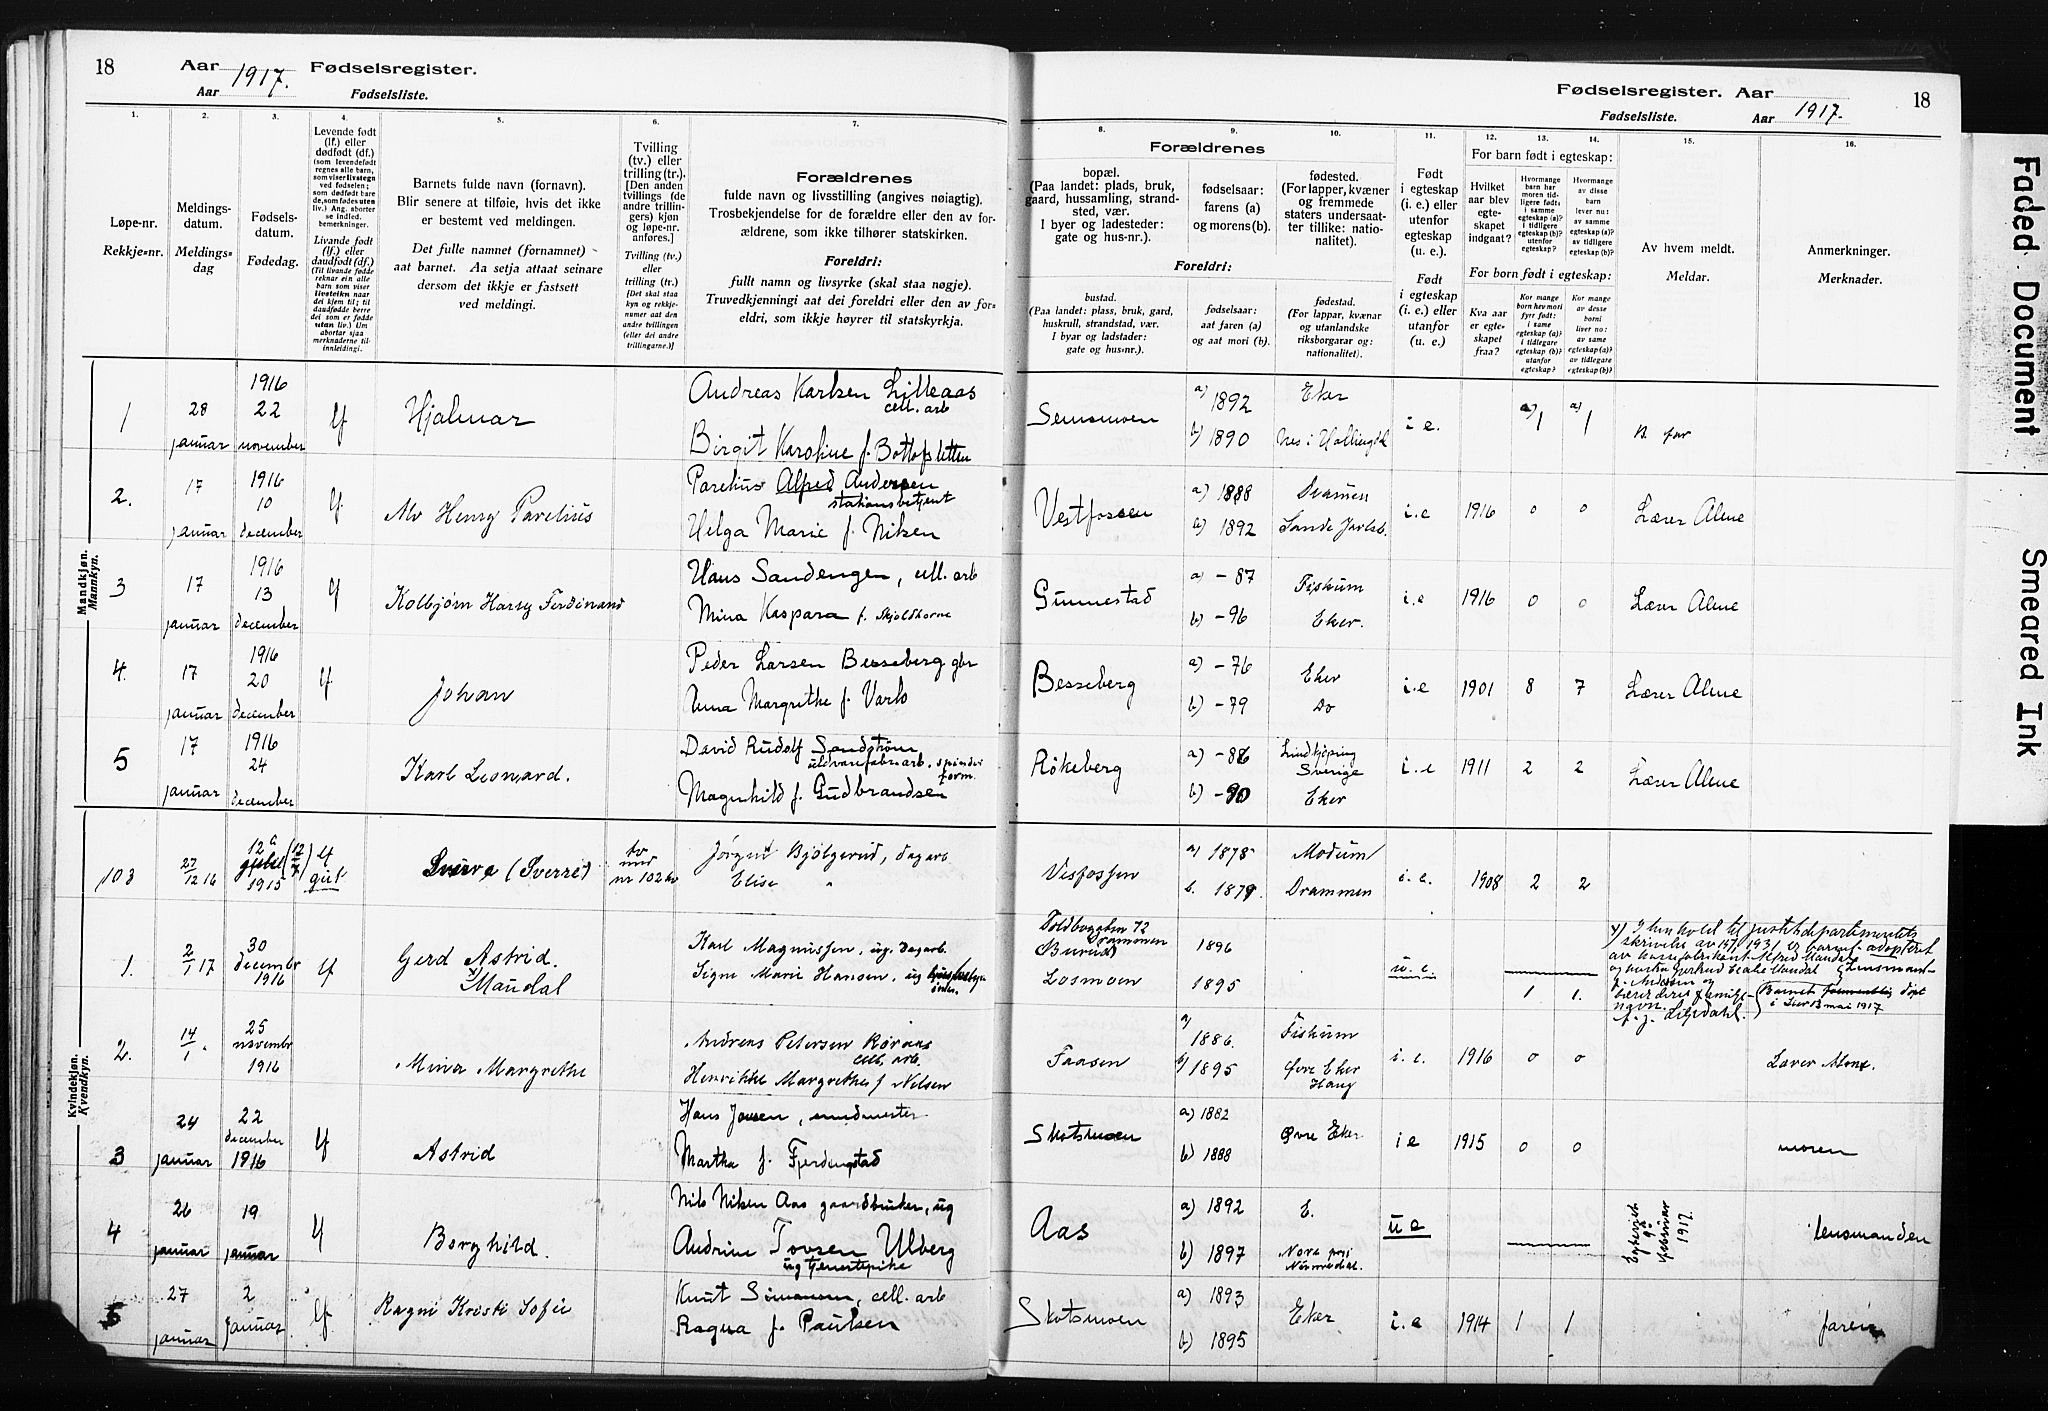 18
Aar 1917. Fødselsregister.
Aar Fødselsliste.
Fødselsregister. Aar
18
Fødselsliste. Aar 1917.
1.
2.
3.
4.
5.
6.
7.
8.
9.
10.
11.
12.
13.
14.
15.
16.
Løpe-nr.
Rekkje-nr.
Meldings-
datum.
Meldings-
dag
Fødsels-
datum.
Fødedag.
Levende født
(lf.) eller
dødfødt (df.)
(som levendefødt
regnes alle barn,
som viser livstegn
ved fødselen;
som dødfødt bare
de, som fødes uten
liv.) Ang. aborter
se indled.
bemerkninger.
Livande født
(lf.) eller
daudfødt (df.)
(Til livande fødde
reknar ein alle
barn som viser
livsteikn naar
dei kjem til; til
daudfødde berre
dei som er fødde
utan liv.) Um
abortar sjaa
merknaderne til-
innleidingi.
Barnets fulde navn (fornavn).
Blir senere at tilføie, hvis det ikke
er bestemt ved meldingen.
Det fulle namnet (fornamnet)
aat barnet. Aa setja attaat seinare
dersom det ikkje er fastsett
ved meldingi.
Tvilling
(tv.) eller
trilling (tr.).
[Den anden
tvillings (de
andre trillin-
gers) kjøn
og løpe-nr.
anføres.]
Tvilling (tv.)
eller
trilling (tr.)
[Det skal staa
kyn og rekkje-
numer aat den
andre tvillingen
(eller dei andre
trillingarne.)]
Forældrenes
fulde navn og livsstilling (angives nøiagtig).
Trosbekjendelse for de forældre eller den av for-
ældrene, som ikke tilhører statskirken.
Foreldri:
fullt namn og livsyrke (skal staa nøgje).
Truvedkjenningi aat dei foreldri eller den av for-
eldri, som ikkje høyrer til statskyrkja.
Forældrenes
bopæl.
(Paa landet: plads, bruk,
gaard, hussamling, strand-
sted, vær.
I byer og ladesteder:
gate og hus-nr.).
fødselsaar:
farens (a)
og morens (b).
fødested.
(For lapper, kvæner
og fremmede
staters undersaat-
ter tillike: natio-
nalitet).
Foreldri:
bustad.
(Paa landet: plass, bruk, gard,
huskrull, strandstad, vær.
I byar og ladstader:
gate og hus-nr.).
fødselsaar:
aat faren (a)
og aat mori (b).
fødestad.
(For lappar, kvænar
og utanlandske
riksborgarar og:
nationalitet).
Født
i egteskap
(i. e.) eller
utenfor
egteskap
(u. e.).
Født
i egteskap
(i. e.) eller
utanfor
egteskap
(u. e.).
For barn født i egteskap:
Hvilket
aar blev
egte-
skapet
indgaat?
Hvormange
barn har
moren tid-
ligere født:
i samme
egteskap (a)?
i tidligere
egteskap (b)?
utenfor
egteskap?
Hvormange
av disse
barn
lever nu:
av samme
egteskap (a)?
av tidligere
egteskap (b)?
For born født i egteskap:
Kva aar
er egte-
skapet
fraa?
Kor mange
born hev mori
fyrr født:
i same
egteskap (a)?
i tidlegare
egteskap (b)?
utanfor
egteskap?
Kor mange
av desse
borni
liver no:
av same
egteskap (a)?
av tidlegare
egteskap (b)?
Av hvem meldt.
Meldar.
Anmerkninger.
Merknader.
Mandkjøn.
Mannkyn.
1
28
januar
1916
22
november
lf
Hjalmar
Andreas Karlsen Lilleaas
cell. arb
Birgit Karoline f. Bottofsletten
Semsmoen
a) 1892
b) 1890
Eker
Nes i Hallingd.
i e.
a) 1
a) 1
B. far
2.
17
januar
1916
10
december
lf.
Alv Henry Parelius
Parelius Alfred Andersen
stationsbetjent
Helga Marie f. Nilsen
Vestfossen
a) 1888
b) 1892
Drammen
Sande Jarlsb.
i. e
1916
0
0
Lærer Alme
3
17
januar
1916
13
december
lf
Kolbjørn Harry Ferdinand
Hans Sandengen, cell. arb
Mina Kaspara f. Skjoldhorne
Gunnestad
a) - 87
b) - 96
Fiskum
Eker.
i. e
1916
0
0
Lærer Alme
4.
17
januar
1916
20
december
lf
Johan
Peder Larsen Besseberg gbr
Anna Margrethe f. Varlo
Besseberg
a) - 76
b) - 79
Eker
Do
i. e
1901
8
7
Lærer Alme
5
17
januar
1916
24
december
Karl Leonard.
David Rudolf Sandstrøm
uldvarefabr.arb. spinderi
form.
Magnhild f. Gudbrandsen
Røkeberg
a) - 86
b) - 90
Lindkjøping
Sverige
Eker
i. e
1911
2
2
Lærer Alme
Kvindekjøn.
Kvendkyn.
103
27/12 16
12 (12/7)
1915
lf
gut
Sverre (Sverre)
tv
med
nr 102
Jørgen Bjølgerud, dagarb
Elise "
Vesfossen
a) 1878
b. 1879.
Modum
Drammen
i. e.
1908
2
2
1.
2/1 17
30
decembr
1916
lf
Gerd Astrid.
x) Maudal
Karl Magnussen, ug. dagarb.
Signe Marie Hansen, ug
Tolbuggaten 72
Drammen
(Burud)
Losmoen
1896
1895
u. e.
1
1.
x) I henhold til justisdepartementets
skrivelse av 15/7 1931 er barnet adopteret
av Alfred Maudal
og hustru Gertrud Maudal
f. Andersen og
bærer deres familie-
navn.
A. J. Liljedahl.
Lensmand-
(Barnet døpt
i Lier 13 mai 1917
2.
14/1.
25
novembr
1916
Mina Margrethe
Andreas Petersen Røraas
cell. arb.
Henrikke Margrethe f Nilsen
Faasen
a) 1886.
b) 1895
Fiskum
Øvre Eker
Haug
i. e.
1916
0
0
Lærer Alme.
3
24
januar
22
december
1916
lf
Astrid
Hans Jensen, smedmester
Martha f. Fjerdingstad
Skotsmoen
a) 1882
b) 1888
Øvre Eker
i e
1915
0
0
moren
4
26
januar
19
januar
lf
Borghild.
Nils Nilsen Aas gaardbruker, ug
Andrine Tovsen Ulberg
ug tjenestepike
Aas
a) 1892
b) 1897
E.
Nore pr
Numedal.
u e
Egteviet
9de
februar
1917.
lensmanden
5
27
januar
2
januar
lf
Ragni Kristi Sofie
Knut Simonsen, cell. arb
Ragna f. Paulsen
Skotsmoen
a) 1893
b) 1895
Eker
i. e
1914
1
1
faren
Faded Document
Smeared Ink